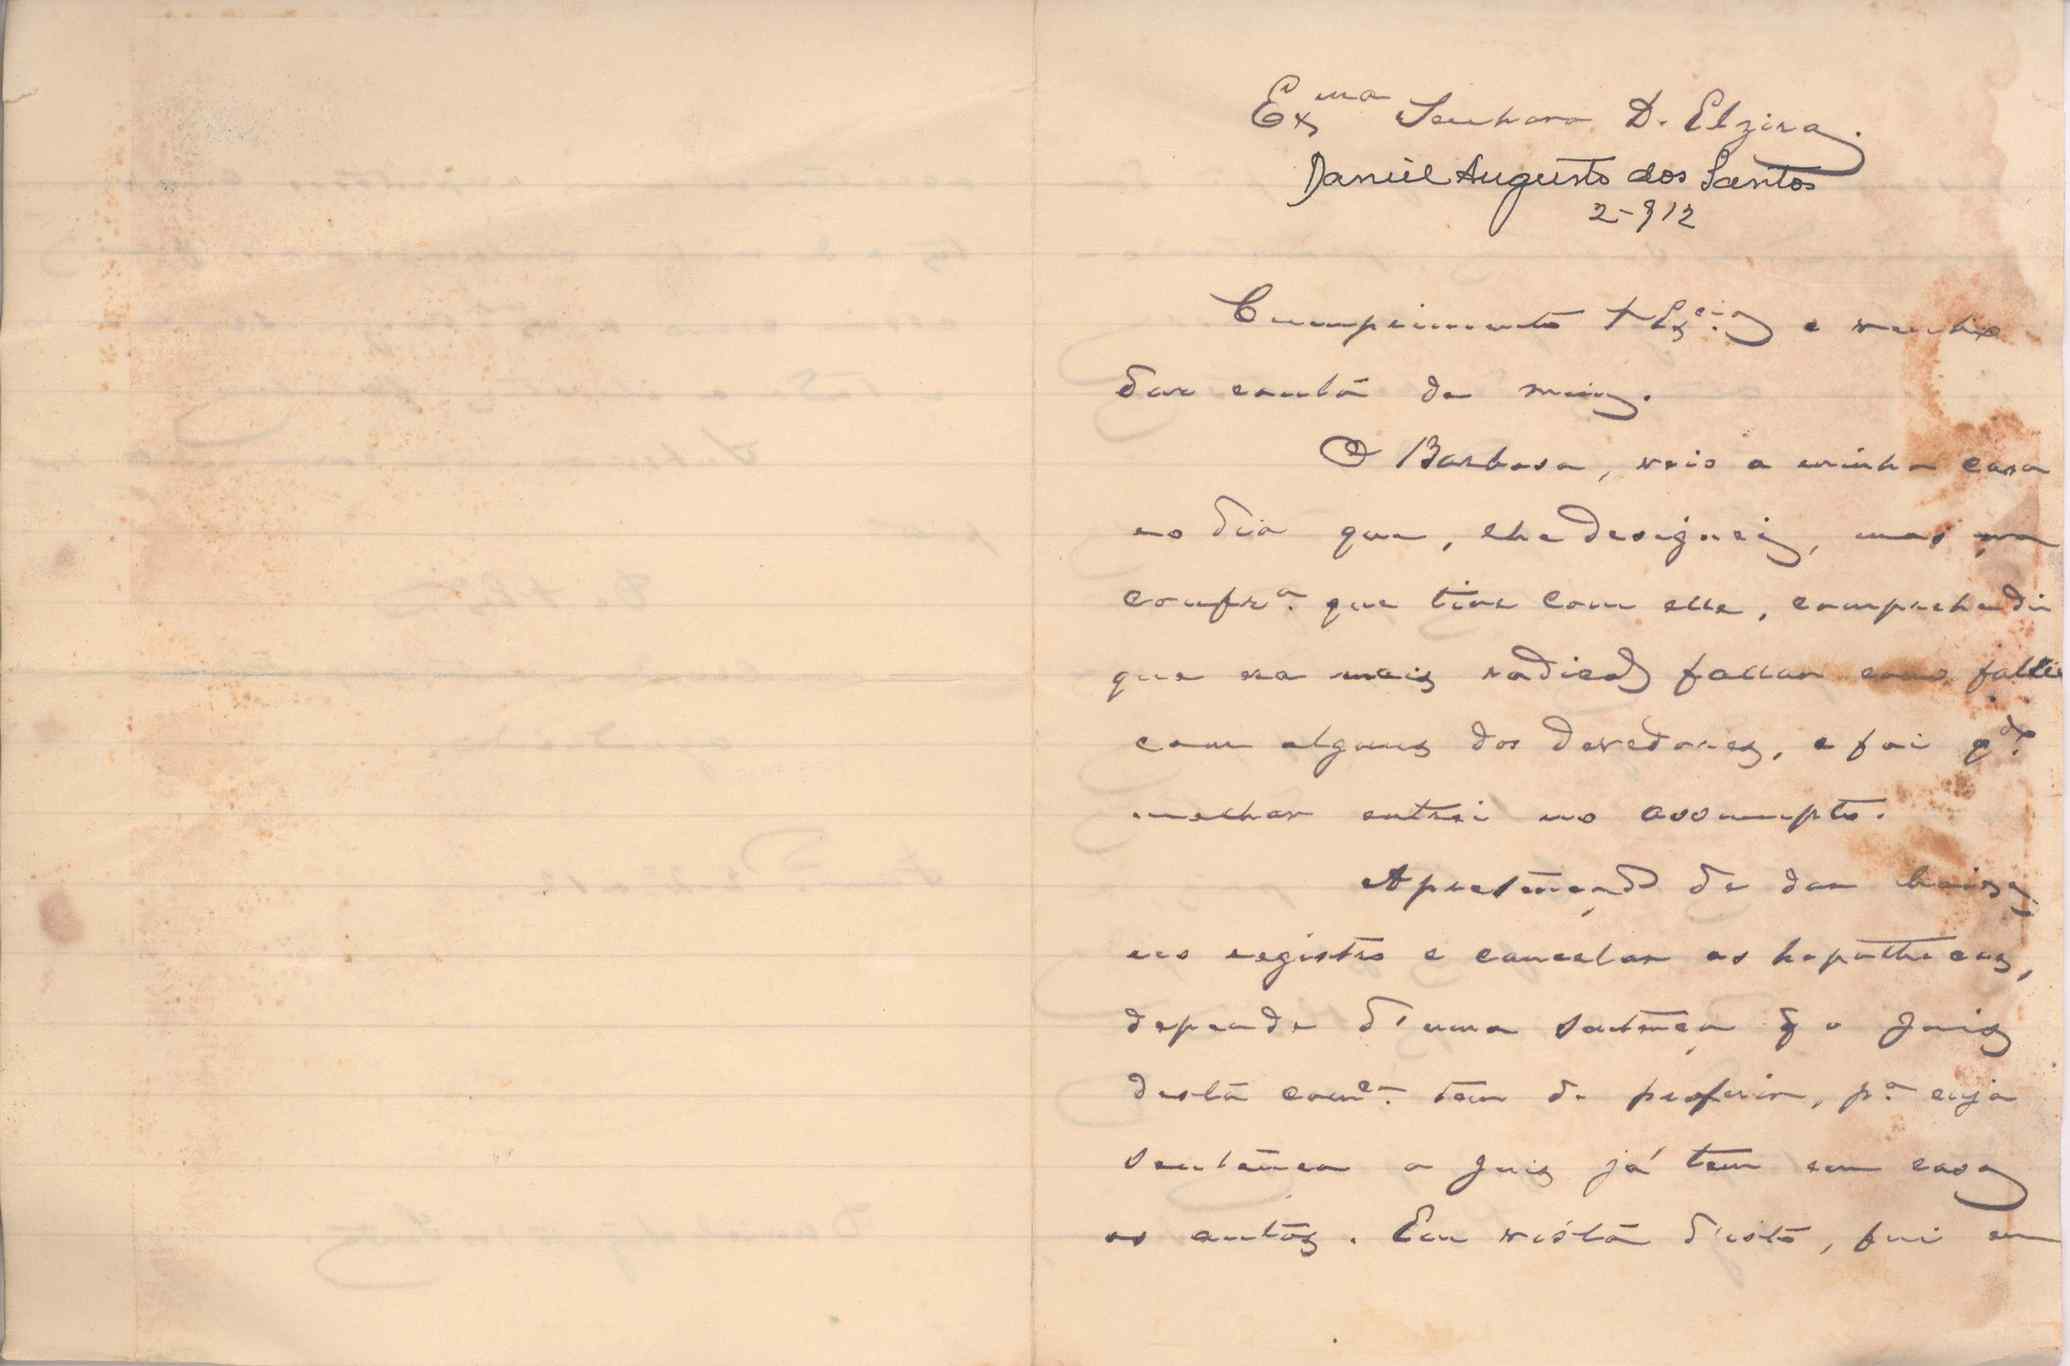 Exma Senhora D. Elzira.
Daniel Augusto dos Santos
2-912
Cumprimento V Excia e venho
dar conta de mim.
O Barbosa, veio a minha casa
no dia que, lhe designei, mas na
confra. que tive com elle, comprehendi
que era mais radical fallar como fallei
com alguns dos devedores, e foi qdo.
melhor entrei no assumpto.
de dar baixa
no registro e cancelar as hypothecas,
depende d'uma sentença q o Juiz
desta comca. tem de proferir, pa. cuja
sentença o Juiz já tem em casa
os autos. Em vista d'isto, fui em